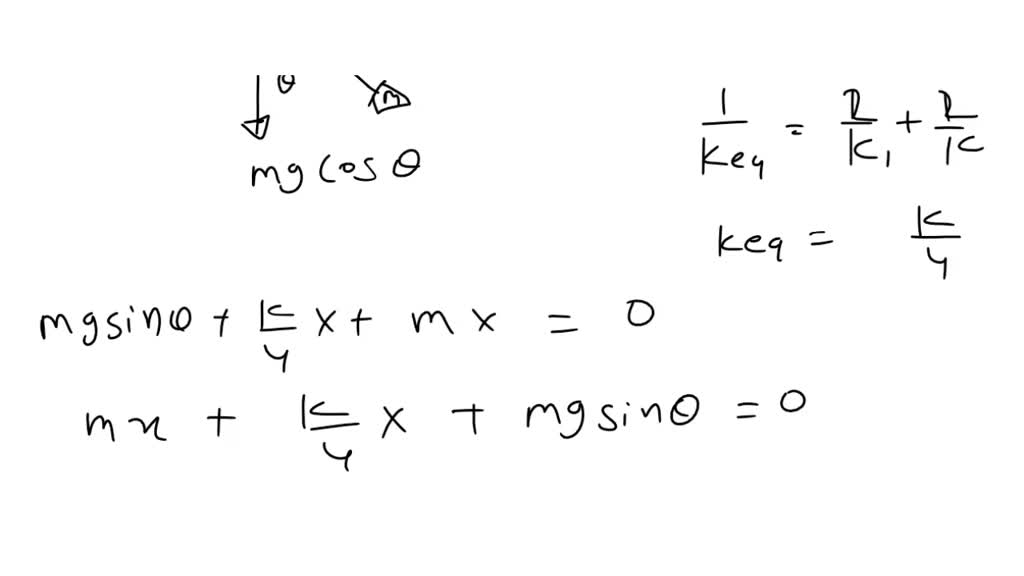 θ m
mg cos θ
1/keq = 2/k1 + 2/k
keq = k/4
mg sinθ + k/4 x + mx = 0
mx + k/4 x + mg sinθ = 0